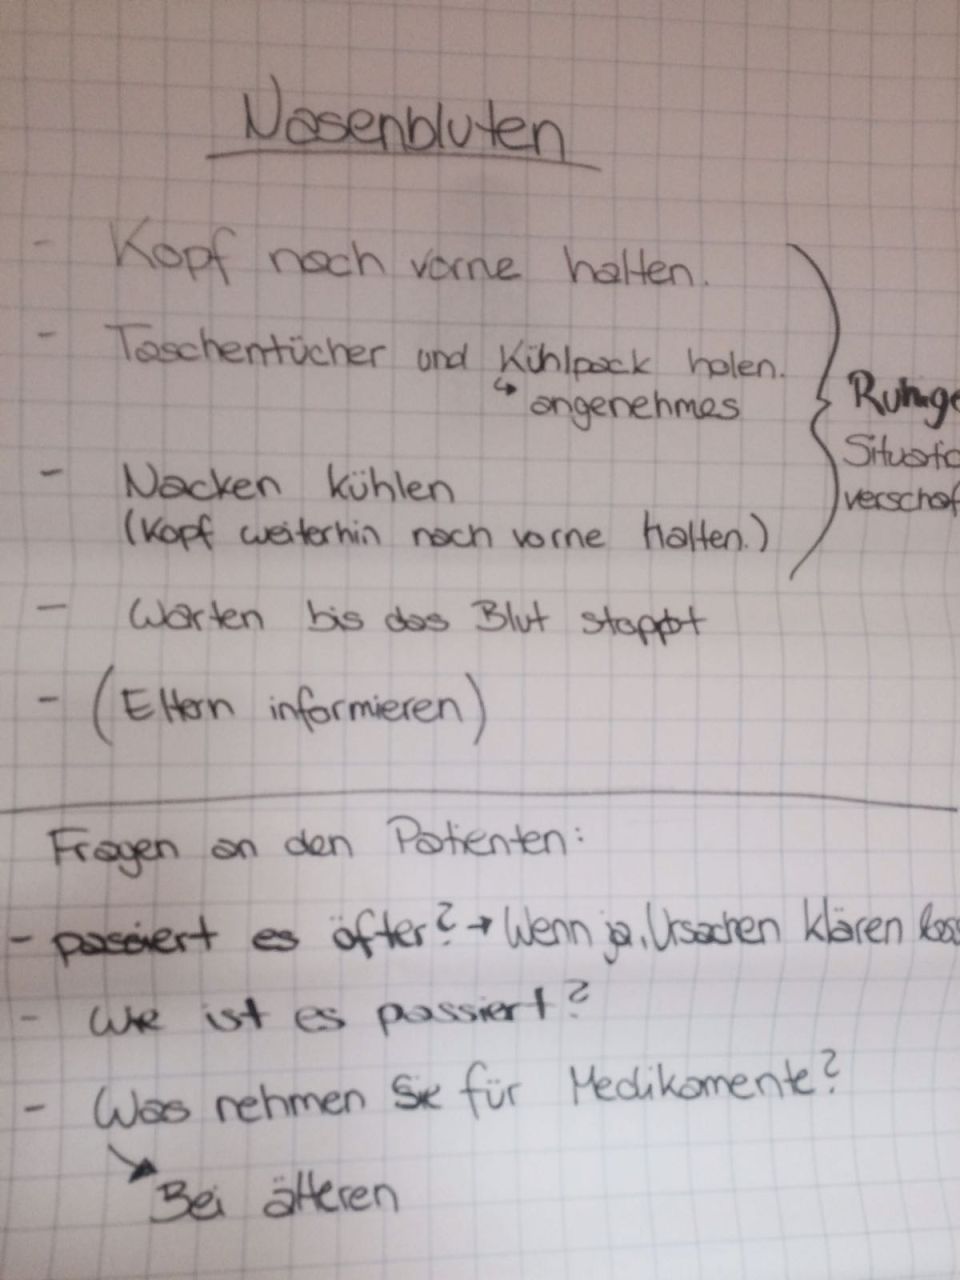 Nasenbluten
- Kopf nach vorne halten.
- Taschentücher und Kühlpack holen.
↳ angenehmes
- Nacken kühlen
(Kopf weiterhin nach vorne halten.)
Ruhige
Situatio
verschaf
- Warten bis das Blut stoppt
- (Eltern informieren)
Fragen an den Patienten:
- passiert es öfter? → Wenn ja, Ursachen klären lass
- Wie ist es passiert?
- Was nehmen Sie für Medikamente?
↘ Bei älteren